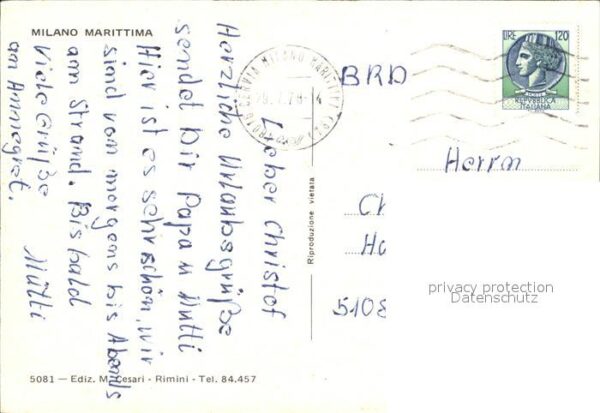 MILANO MARITTIMA
Lieber Christof
Herzliche Urlaubsgrüße
sendet dir Papa u Mutti
Hier ist es sehr schön, wir
sind von morgens bis Abends
am Strand. Bis bald
Viele Grüße Mutti
an Annegret.
5081 — Ediz. M. Cesari - Rimini - Tel. 84.457
Riproduzione vietata
CERVIA MILANO MARITTIMA
LIRE 120
REPVBBLICA
ITALIANA
BRD
Herrn
Ch
Ha
5108
privacy protection
Datenschutz